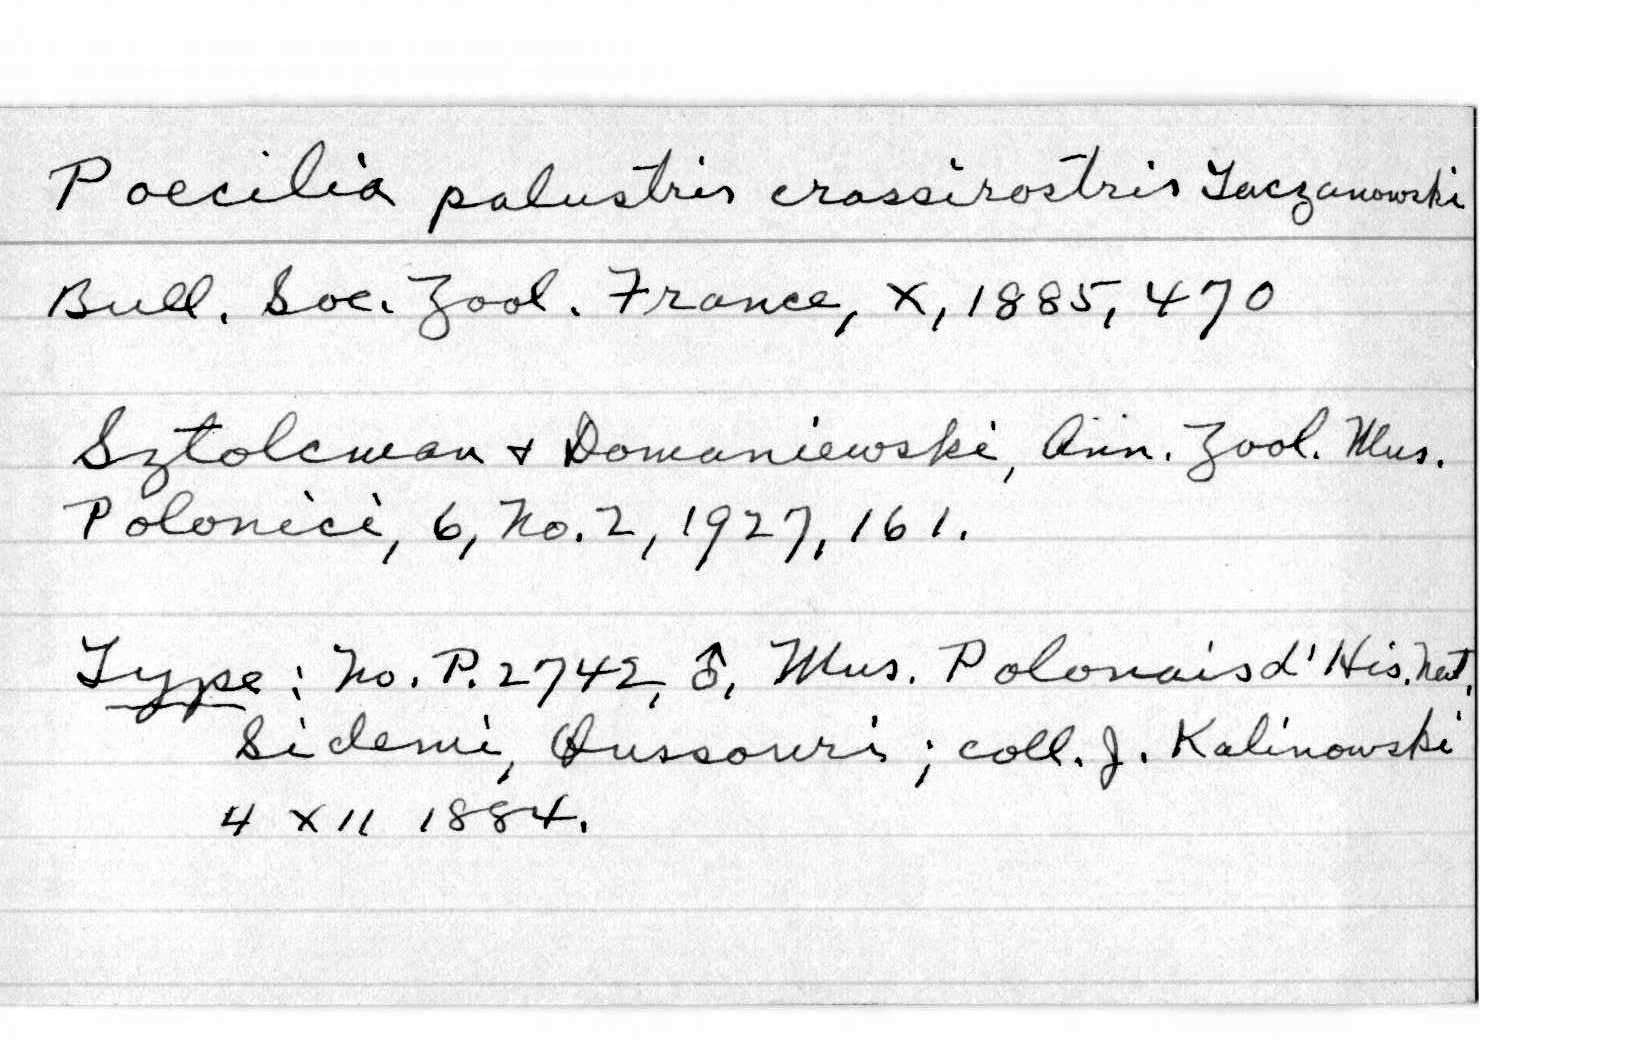 Poecilia palustris crassirostris Taczanowski
Bull. Soc. Zool. France, X, 1885, 470
Sztolcman & Domaniewski, Ann. Zool. Mus.
Polonici, 6, No. 2, 1927, 161.
Type: No. P. 2742, ♂, Mus. Polonais d'His. Nat.
Sidemi, Oussouri; coll. J. Kalinowski
4 XII 1884.